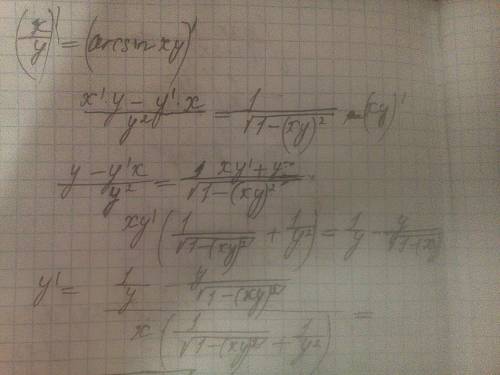 (x/y)' = (arcsin xy)'
(x'·y - y'·x)/y² = 1/√(1-(xy)²) · (xy)'
(y - y'x)/y² = (xy' + y)/√(1-(xy)²)
xy'(1/√(1-(xy)²) + 1/y²) = 1/y - y/√(1-(xy)
y' = (1/y - y/√(1-(xy)²))/(x(1/√(1-(xy)²) + 1/y²)) =